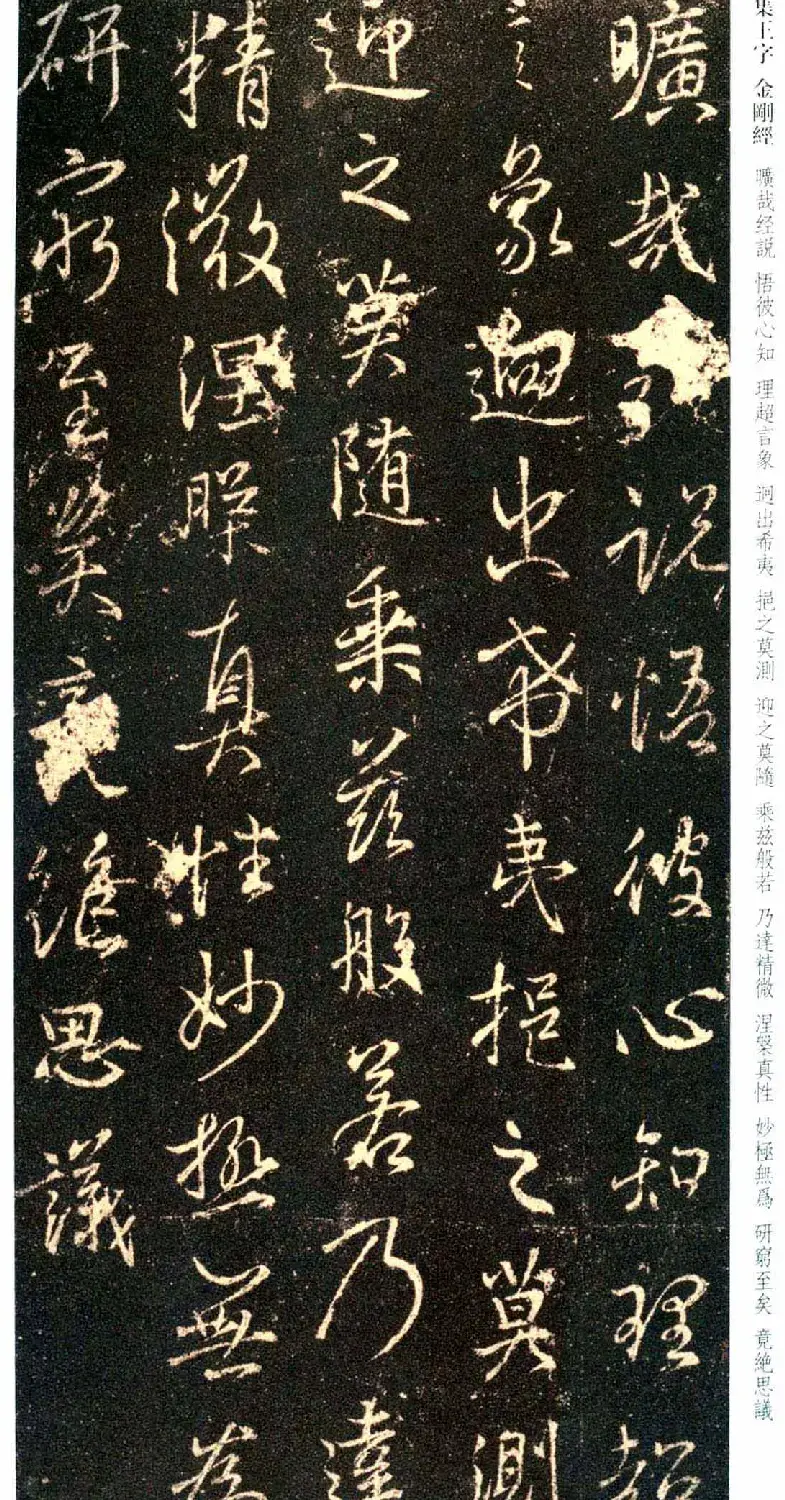 集王字 金剛經 曠哉经説 悟彼心知 理超言象 迥出希夷 挹之莫測 迎之莫隨 乘兹般若 乃達精微 涅槃真性 妙極無爲 研窮至矣 竟絶思議
曠哉經説悟彼心知理超
言象迥出希夷挹之莫測
迎之莫隨乘兹般若乃達
精微涅槃真性妙極無為
研窮至矣竟絶思議